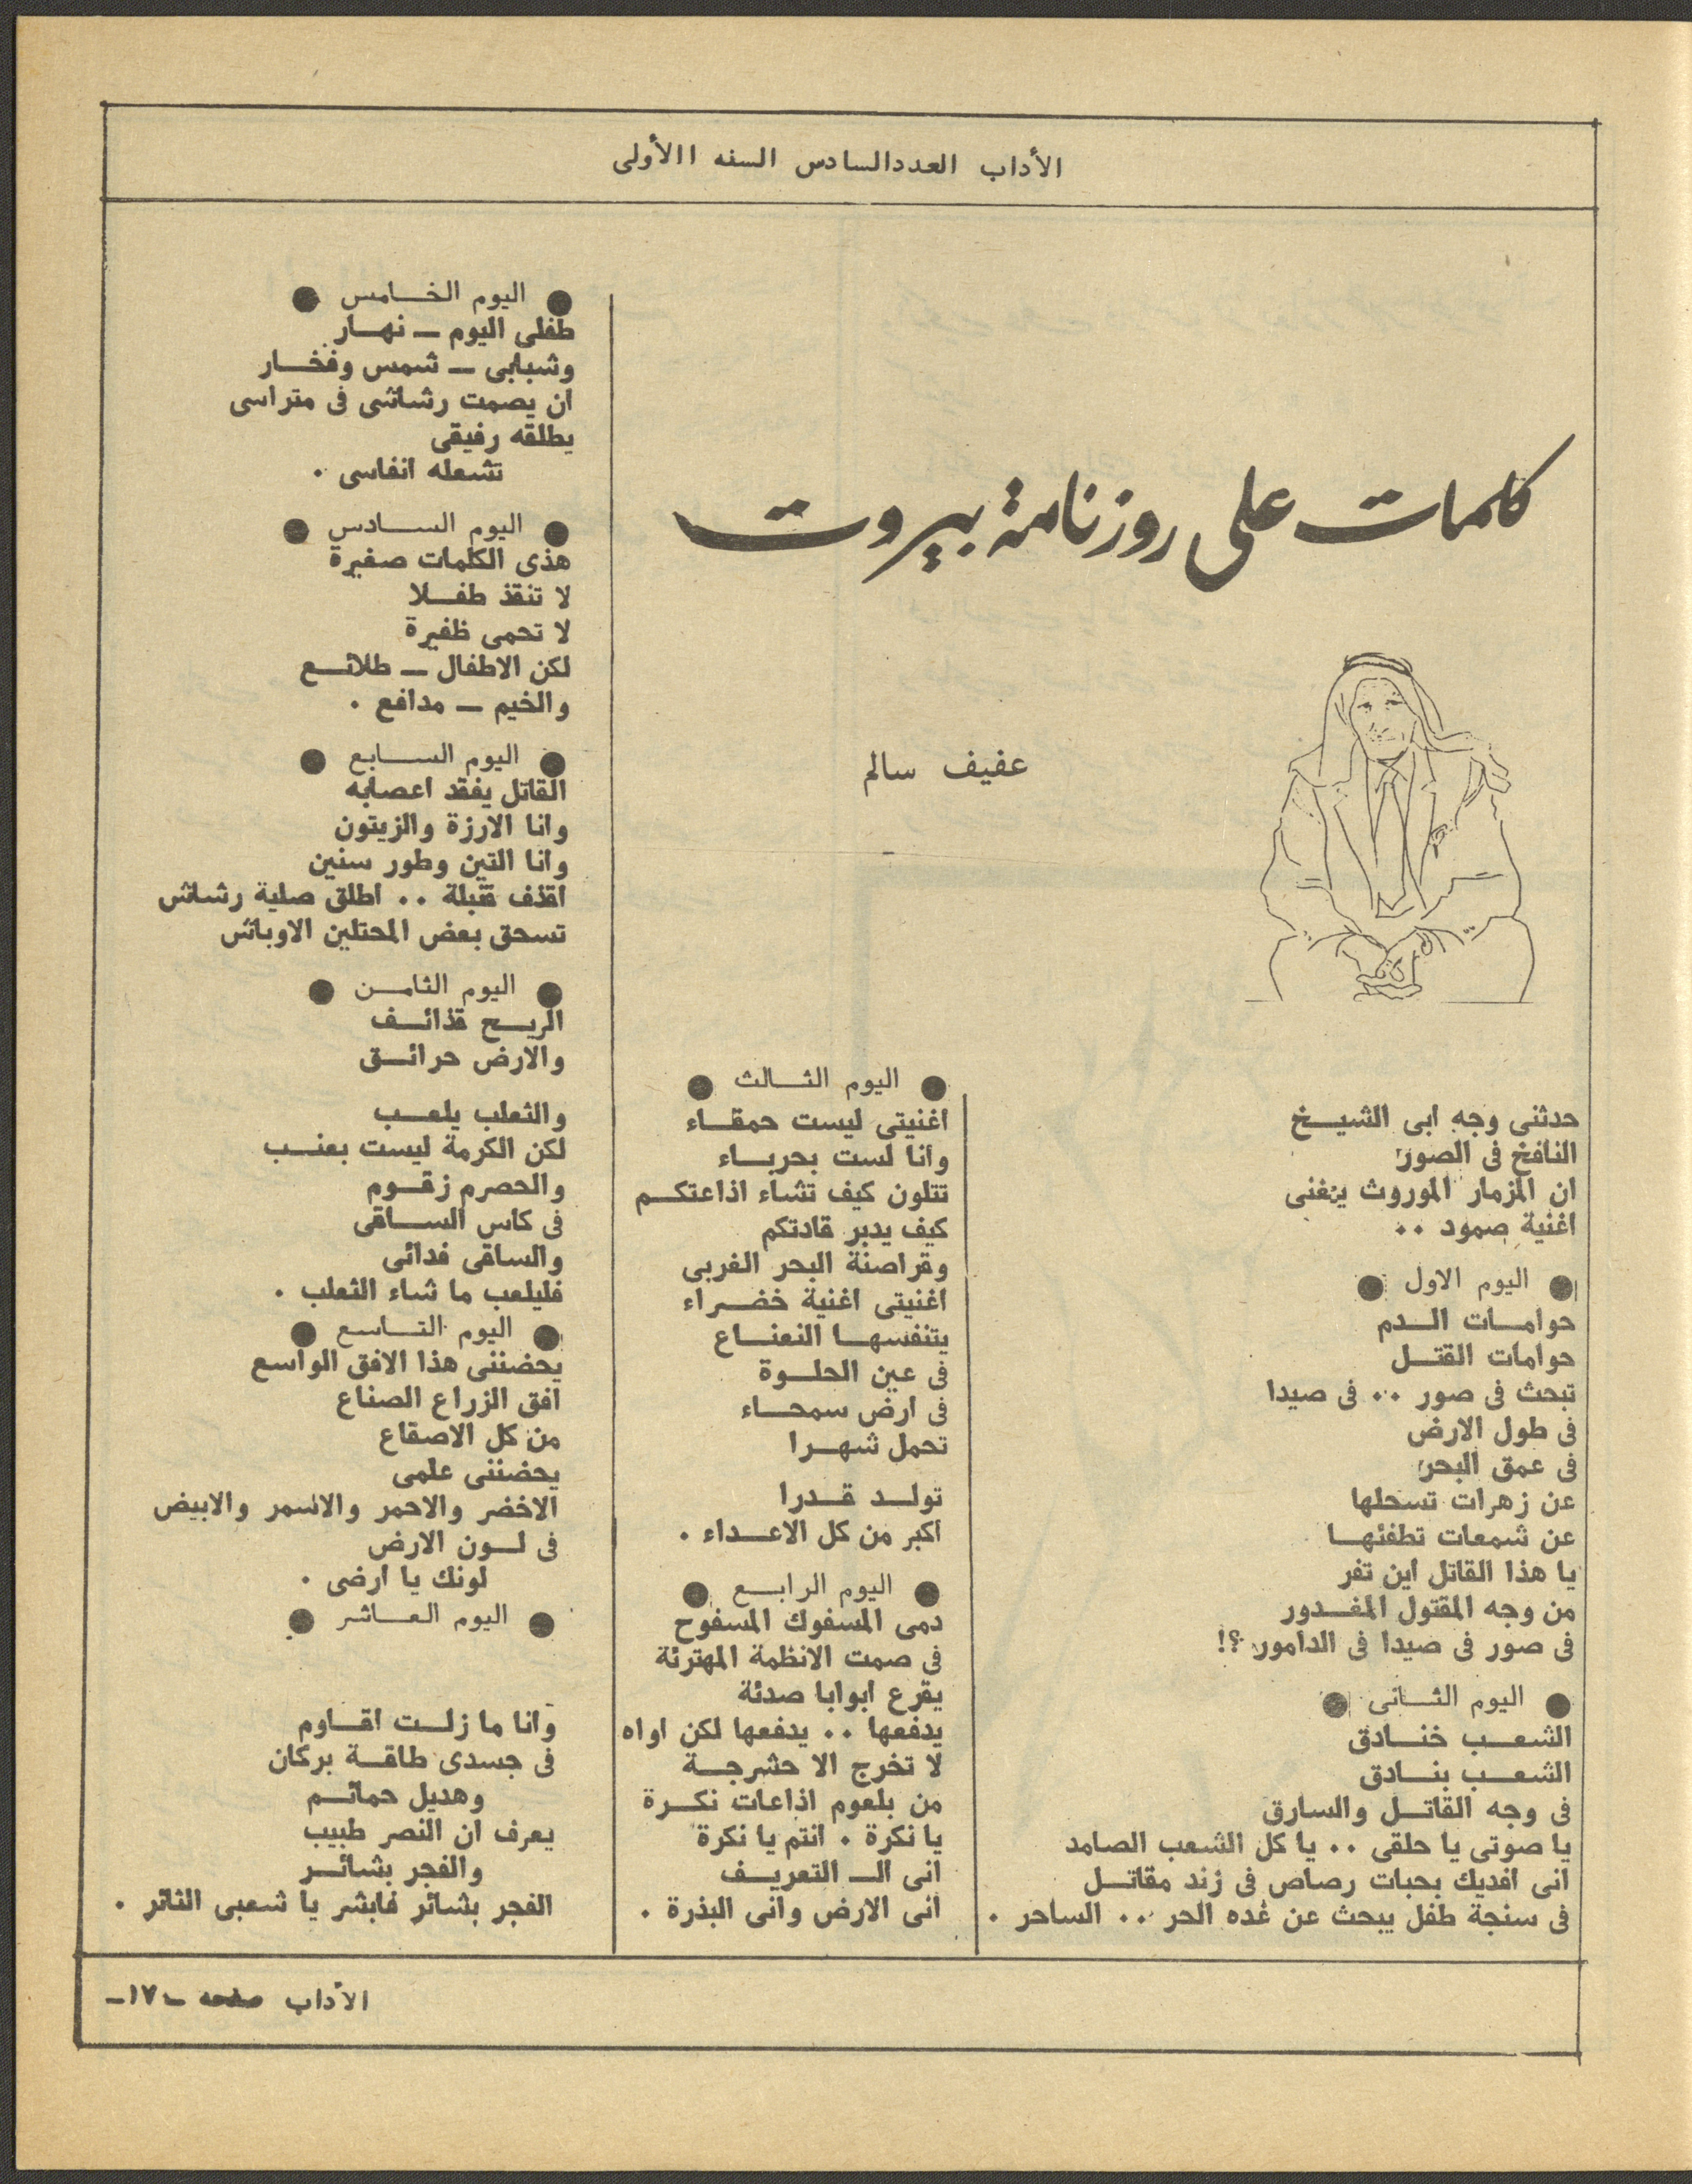 الأداب العدد السادس السنه االأولى
كلمات على روزنامة بيروت
عفيف سالم
حدثنى وجه ابى الشيـــخ
النافخ فى الصور
ان المزمار الموروث يغنى
اغنية صمود ..
● اليوم الاول ●
حوامـــات الـــدم
حوامات القتـــل
تبحث فى صور .. فى صيدا
فى طول الارض
فى عمق البحر
عن زهرات تسحلها
عن شمعات تطفئهـــا
يا هذا القاتل اين تفر
من وجه المقتول المغـــدور
فى صور فى صيدا فى الدامور ؟!
● اليوم الثـــانى ●
الشعـــب خنـــادق
الشعـــب بنـــادق
فى وجه القاتـــل والسارق
يا صوتى يا حلقى .. يا كل الشعب الصامد
انى افديك بحبات رصاص فى زند مقاتـــل
فى سنجة طفل يبحث عن غده الحر .. الساحر .
● اليوم الثـــالث ●
اغنيتى ليست حمقـــاء
وانا لست بحربـــاء
تتلون كيف تشاء اذاعتكـــم
كيف يدبر قادتكم
وقراصنة البحر الغربى
اغنيتى اغنية خضـــراء
يتنفسهـــا النعنـــاع
فى عين الحلـــوة
فى ارض سمحـــاء
تحمل شهـــرا
تولـــد قـــدرا
اكبر من كل الاعـــداء .
● اليوم الرابـــع ●
دمى المسفوك المسفوح
فى صمت الانظمة المهترئة
يقرع ابوابا صدئة
يدفعها .. يدفعها لكن اواه
لا تخرج الا حشرجـــة
من بلعوم اذاعات نكـــرة
يا نكرة . انتم يا نكرة
انى الــ التعريـــف
انى الارض وانى البذرة .
● اليوم الخـــامس ●
طفلى اليوم ــ نهـــار
وشبابى ــ شمس وفخـــار
ان يصمت رشاشى فى متراسى
يطلقه رفيقى
تشعله انفاسى .
● اليوم الســـادس ●
هذى الكلمات صغيرة
لا تنقذ طفـــلا
لا تحمى ظفيرة
لكن الاطفال ــ طلائـــع
والخيم ــ مدافع .
● اليوم الســـابع ●
القاتل يفقد اعصابه
وانا الارزة والزيتون
وانا التين وطور سنين
اقذف قنبلة .. اطلق صلية رشاش
تسحق بعض المحتلين الاوباش
● اليوم الثامـــن ●
الريـــح قذائـــف
والارض حرائـــق
والثعلب يلعـــب
لكن الكرمة ليست بعنـــب
والحصرم زقـــوم
فى كاس الســـاقى
والساقى فدائى
فليلعب ما شاء الثعلب .
● اليوم التـــاسع ●
يحضننى هذا الافق الواسع
افق الزراع الصناع
من كل الاصقاع
يحضننى علمى
الاخضر والاحمر والاسمر والابيض
فى لـــون الارض
لونك يا ارضى .
● اليوم العـــاشر ●
وانا ما زلـــت اقـــاوم
فى جسدى طاقـــة بركان
وهديل حمائـــم
يعرف ان النصر طبيب
والفجر بشائـــر
الفجر بشائر فابشر يا شعبى الثائر .
الآداب صفحه ـ١٧ـ